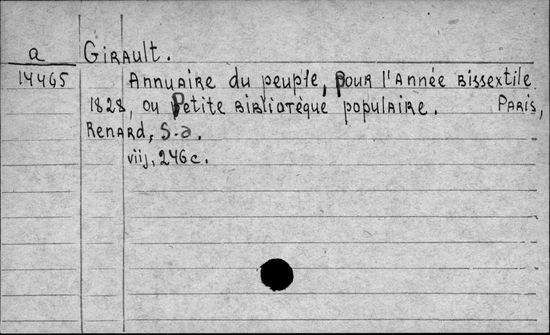 a Girault.
14465 Annuaire du peuple, pour l'année bissextile
1828, ou Petite Bibliotèque populaire. Paris,
Renard, S.a.
viij, 246 c.